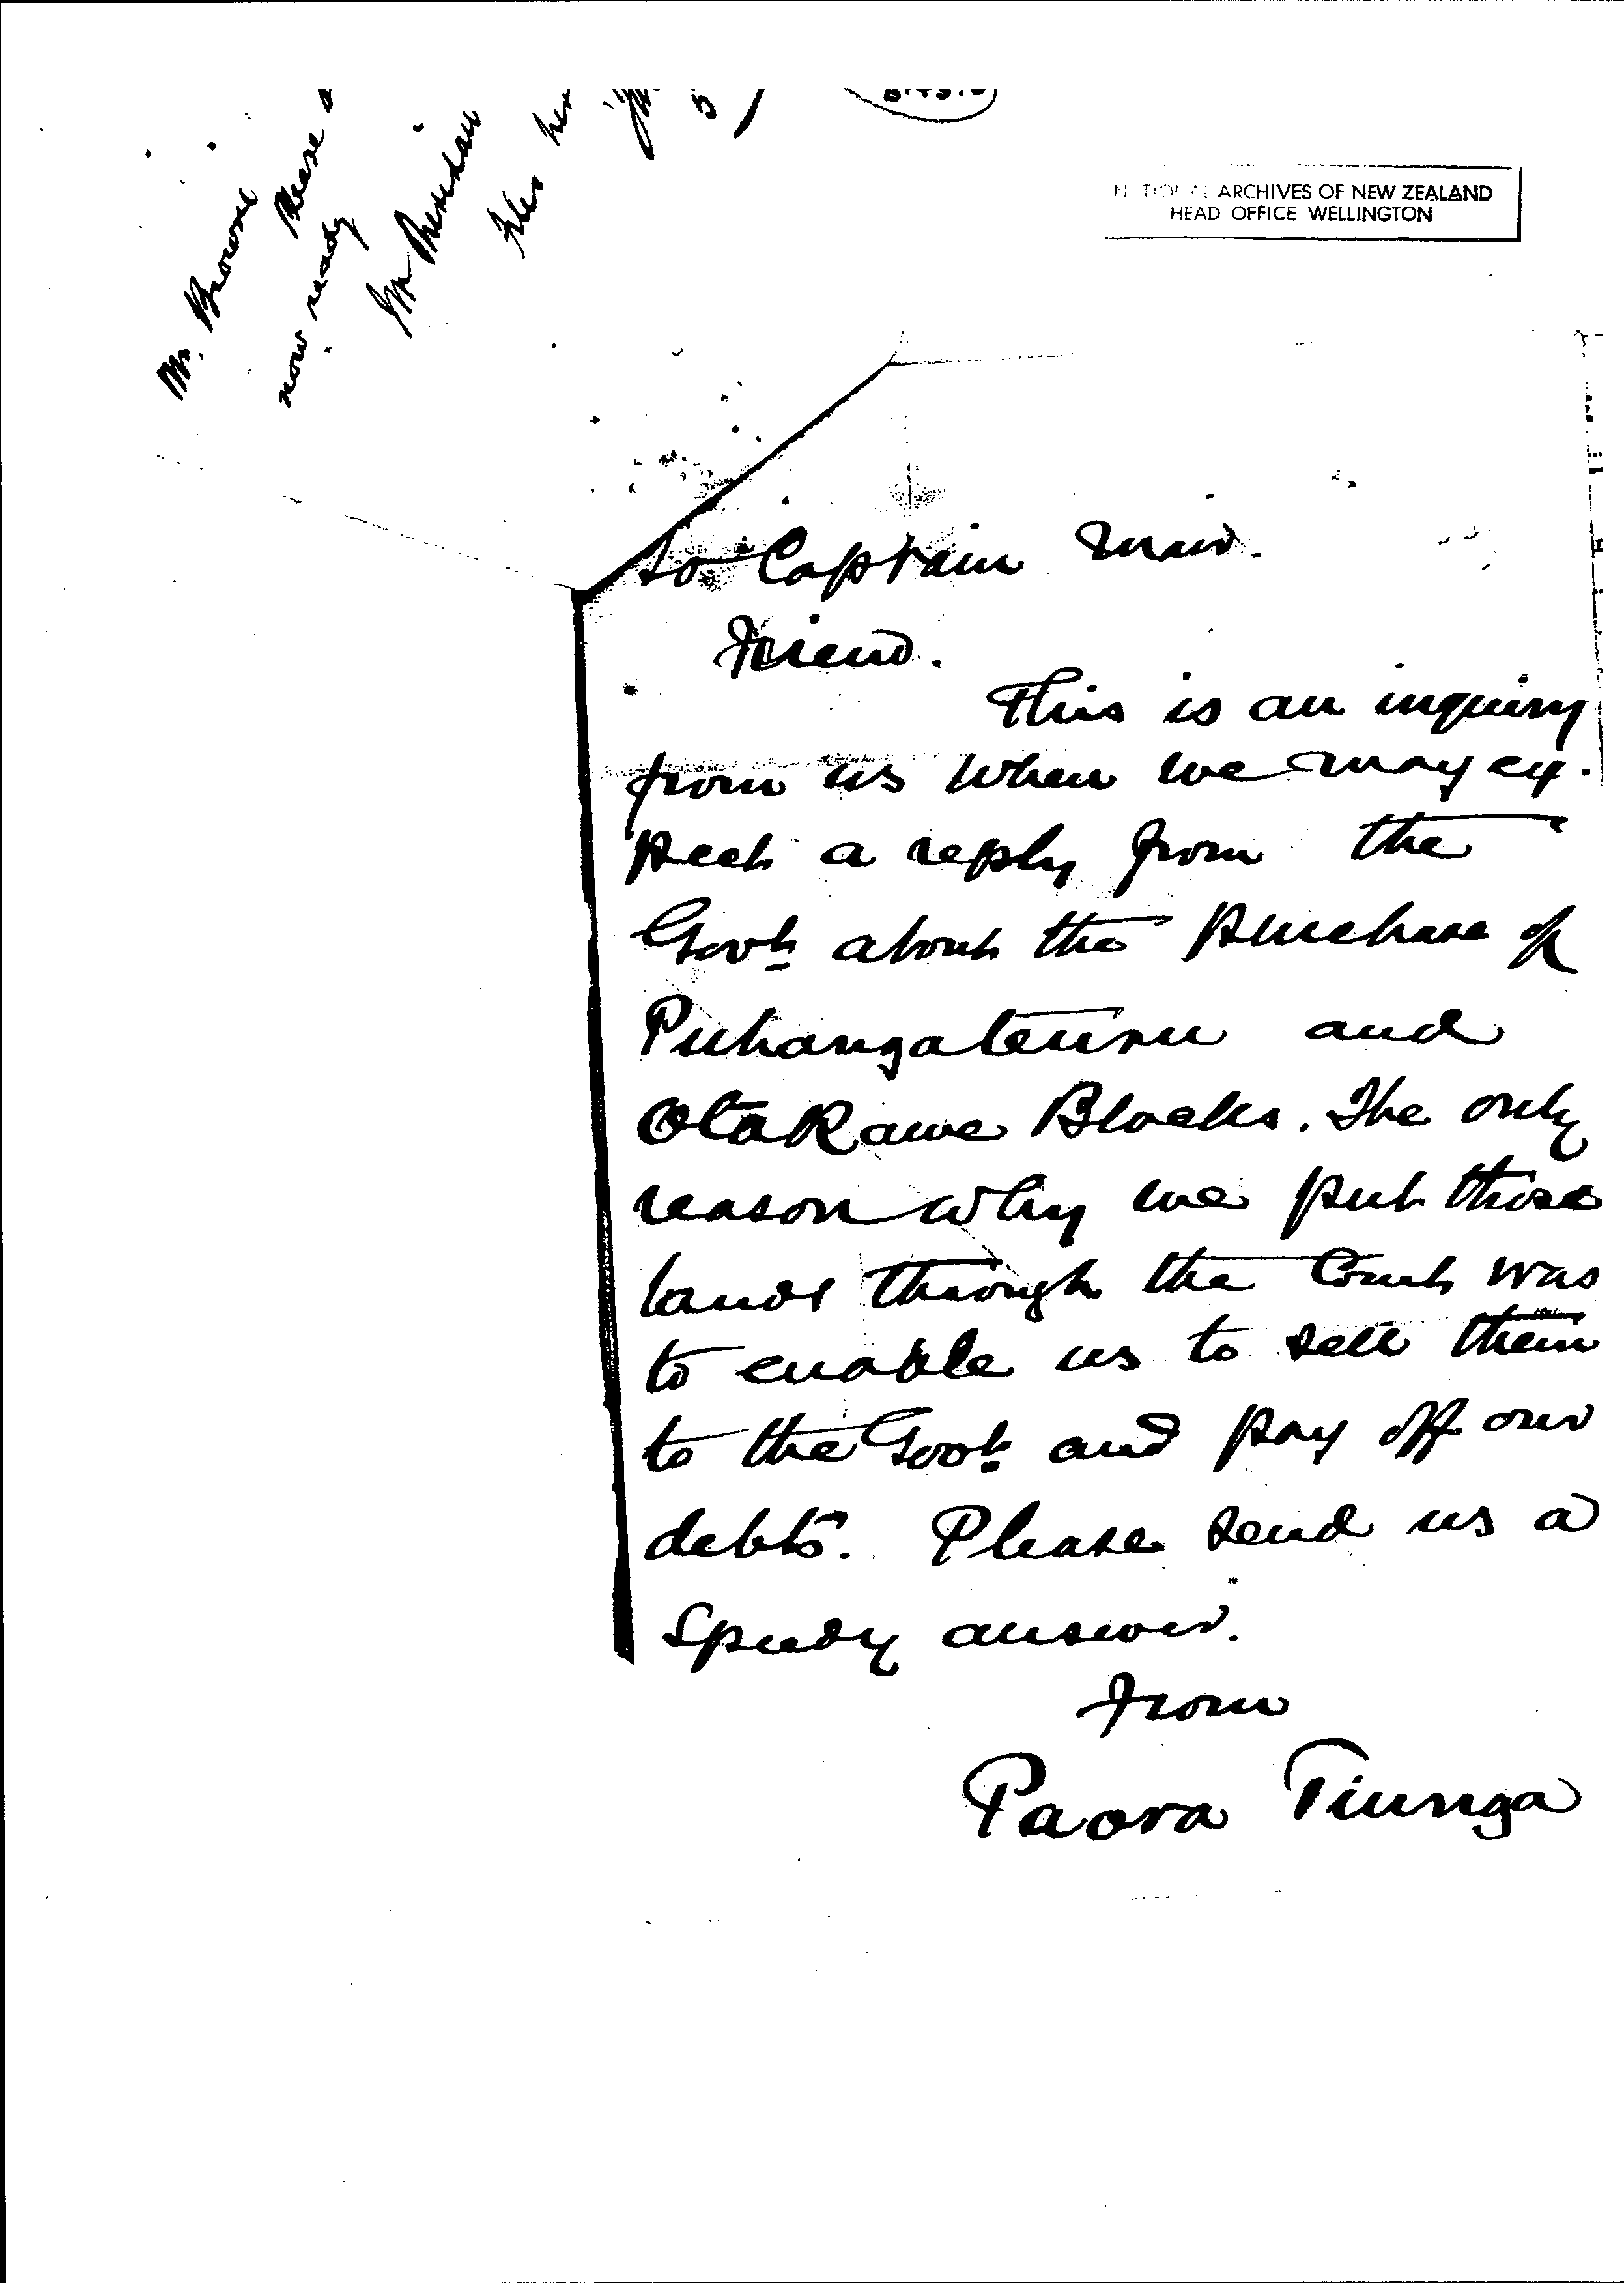 Mr. Browne
Please
now ready
NATIONAL ARCHIVES OF NEW ZEALAND
HEAD OFFICE WELLINGTON
To Captain Mair.
Friend.
This is an inquiry
from us when we may ex-
pect a reply from the
Govt. about the purchase of
Puhangateuru and
Otakawe Blocks. The only
reason why we put those
lands through the Court was
to enable us to sell them
to the Govt. and pay off our
debts. Please send us a
Speedy answer.
From
Paora Tiunga